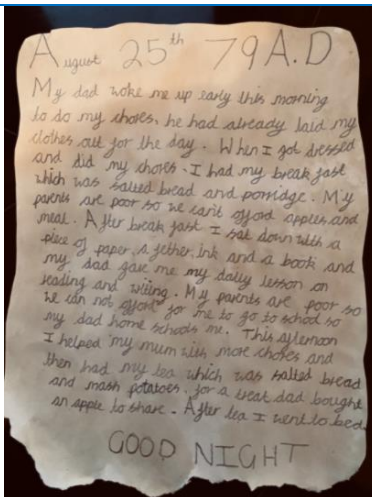 August 25th 79A.D
My dad woke me up early this morning
to do my chores, he had already laid my
clothes out for the day. When I got dressed
and did my chores. I had my break fast
which was salted bread and porridge. My
parents are poor so we can't afford apples and
meat. After break fast I sat down with a
piece of paper, a fether, ink and a book and
my dad gave me my daily lesson on
reading and writing. My parents are poor so
we can not afford for me to go to school so
my dad home schools me. This afternoon
I helped my mum with more chores and
then had my tea which was salted bread
and mash potatoes, for a treat dad bought
an apple to share. After tea I went to bed
GOOD NIGHT